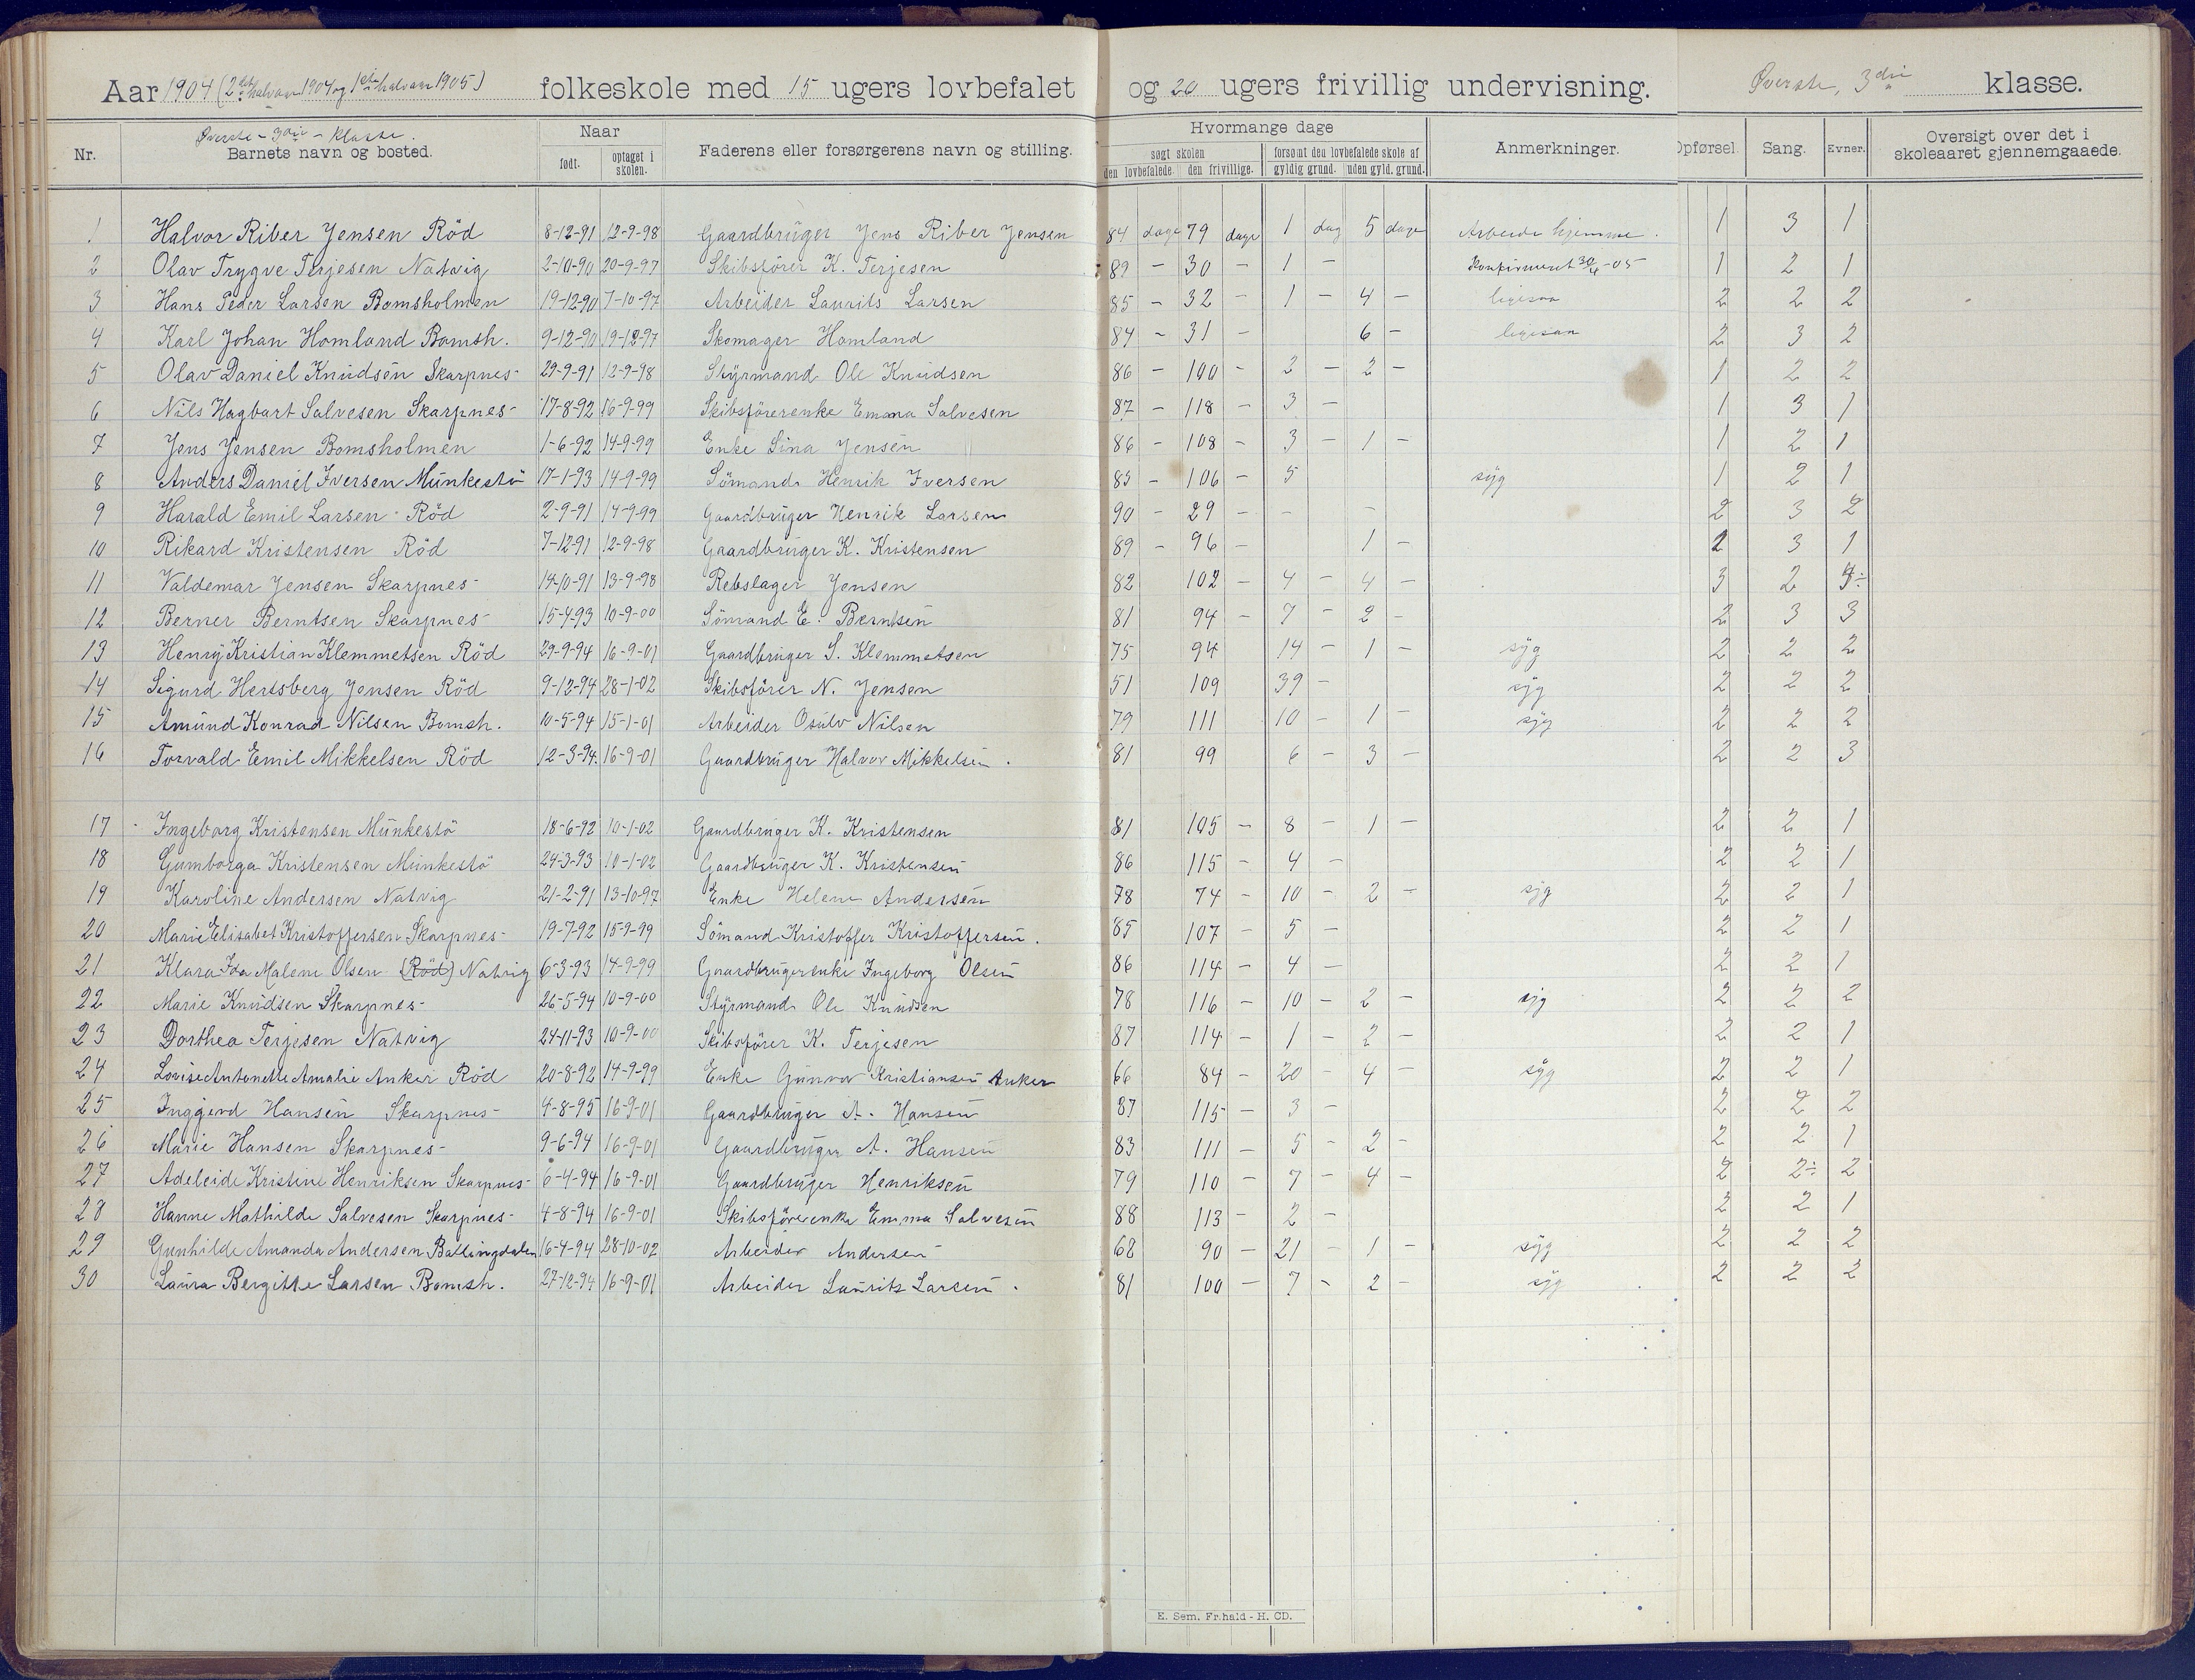 Aar 1904 (2det halvaar 1904 og 1ste halvaar 1905) folkeskole med 15 ugers lovbefalet og 20 ugers frivillig undervisning. Øverste, 3die klasse.
Nr. Øverste - 3die - Klasse. Naar Hvormange dage
Barnets navn og bosted. født. optaget i skolen. Faderens eller forsørgerens navn og stilling. søgt skolen forsømt den lovbefalede skole af Anmerkninger. Opførsel. Sang. Evner. Oversigt over det i skoleaaret gjennemgaaede.
den lovbefalede. den frivillige. gyldig grund. uden gyld. grund.
1 Halvor Riber Jensen Röd 8-12-91 12-9-98 Gaardbruger Jens Riber Jensen 84 dage 79 dage 1 dag 5 dage Arbeide hjemme. 1 3 1
2 Olav Trygve Terjesen Natvig 2-10-90 20-9-97 Skibsförer K. Terjesen 89 - 30 - 1 - Konfirmeret 30/4-05 1 2 1
3 Hans Peder Larsen Bomsholmen 19-12-90 7-10-97 Arbeider Laurits Larsen 85 - 32 - 1 - 4 - ligesaa 2 2 2
4 Karl Johan Homland Bomsh. 9-12-90 19-12-97 Skomager Homland 84 - 31 - 6 - ligesaa 2 3 2
5 Olav Daniel Knudsen Skarpnes- 29-9-91 12-9-98 Styrmand Ole Knudsen 86 - 100 - 2 - 2 - 1 2 2
6 Nils Hagbart Salvesen Skarpnes- 17-8-92 16-9-99 Skibsförerenke Emma Salvesen 87 - 118 - 3 - 1 3 1
7 Jens Jensen Bomsholmen 1-6-92 14-9-99 Enke Sina Jensen 86 - 108 - 3 - 1 - 1 2 1
8 Anders Daniel Iversen Munkestö 17-1-93 14-9-99 Sömand Henrik Iversen 85 - 106 - 5 syg 1 2 1
9 Harald Emil Larsen - Röd 2-9-91 14-9-99 Gaardbruger Henrik Larsen 90 - 29 - - - 2 3 2
10 Rikard Kristensen Röd 7-12-91 12-9-98 Gaardbruger K. Kristensen 89 - 96 - 1 - 2 3 1
11 Valdemar Jensen Skarpnes- 14-10-91 13-9-98 Rebslager Jensen 82 102 - 4 - 4 - 3 2
12 Berner Berntsen Skarpnes- 15-4-93 10-9-00 Sömand E. Berntsen 81 94 - 7 - 2 - 2 3 3
13 Henry Kristian Klemmetsen Röd 29-9-94 16-9-01 Gaardbruger S. Klemmetsen 75 94 14 - 1 - syg 2 2 2
14 Sigurd Hertsberg Jensen Röd 9-12-94 28-1-02 Skibsförer N. Jensen 51 109 39 - syg 2 2 2
15 Amund Konrad Nilsen Bomsh. 10-5-94 15-1-01 Arbeider Osulv Nilsen 79 111 10 - 1 - syg 2 2 2
16 Torvald Emil Mikkelsen Röd 12-3-94. 16-9-01 Gaardbruger Halvor Mikkelsen. 81 99 6 - 3 - 2 2 3
17 Ingeborg Kristensen Munkestö 18-6-92 10-1-02 Gaardbruger K. Kristensen 81 105 - 8 - 1 - 2 2 1
18 Gumborga Kristensen Munkestö 24-3-93 10-1-02 Gaardbruger K. Kristensen 86 115 - 4 - 2 2 1
19 Karoline Andersen Natvig 21-2-91 13-10-97 Enke Helene Andersen 78 74 - 10 - 2 - syg 2 2 1
20 Marie Elisabet Kristoffersen Skarpnes- 19-7-92 15-9-99 Sömand Kristoffer Kristoffersen. 85 107 - 5 - 2 2 1
21 Klara Ida Malene Olsen (Röd) Natvig 6-3-93 14-9-99 Gaardbrugerenke Ingeborg Olsen 86 114 - 4 - 2 2 1
22 Marie Knudsen Skarpnes- 26-5-94 10-9-00 Styrmand Ole Knudsen 78 116 - 10 - 2 - syg 2 2 2
23 Dorthea Terjesen Natvig 24-11-93 10-9-00 Skibsförer K. Terjesen 87 114 - 1 - 2 - 2 2 1
24 Lovise Antonette Amalie Anker Röd 20-8-92 14-9-99 Enke Gunvor Kristiansen Anker 66 84 - 20 - 4 - syg 2 2 1
25 Inggjerd Hansen Skarpnes- 4-8-95 16-9-01 Gaardbruger A. Hansen 87 115 - 3 - 2 2 2
26 Marie Hansen Skarpnes- 9-6-94 16-9-01 Gaardbruger A. Hansen 83 111 - 5 - 2 - 2 2 1
27 Adeleide Kristine Henriksen Skarpnes- 6-4-94 16-9-01 Gaardbruger Henriksen 79 110 - 7 - 4 - 2 2÷ 2
28 Hanne Mathilde Salvesen Skarpnes- 4-8-94 16-9-01 Skibsförerenke Emma Salvesen 88 113 - 2 - 2 2 1
29 Gunhilde Amanda Andersen Ballingdalen 16-4-94 28-10-02 Arbeider Andersen 68 90 - 21 - 1 - syg 2 2 2
30 Laura Bergitte Larsen Bomsh. 27-12-94 16-9-01 Arbeider Laurits Larsen. 81 100 - 7 - 2 - syg 2 2 2
E. Sem. Fr.hald - H. CD.